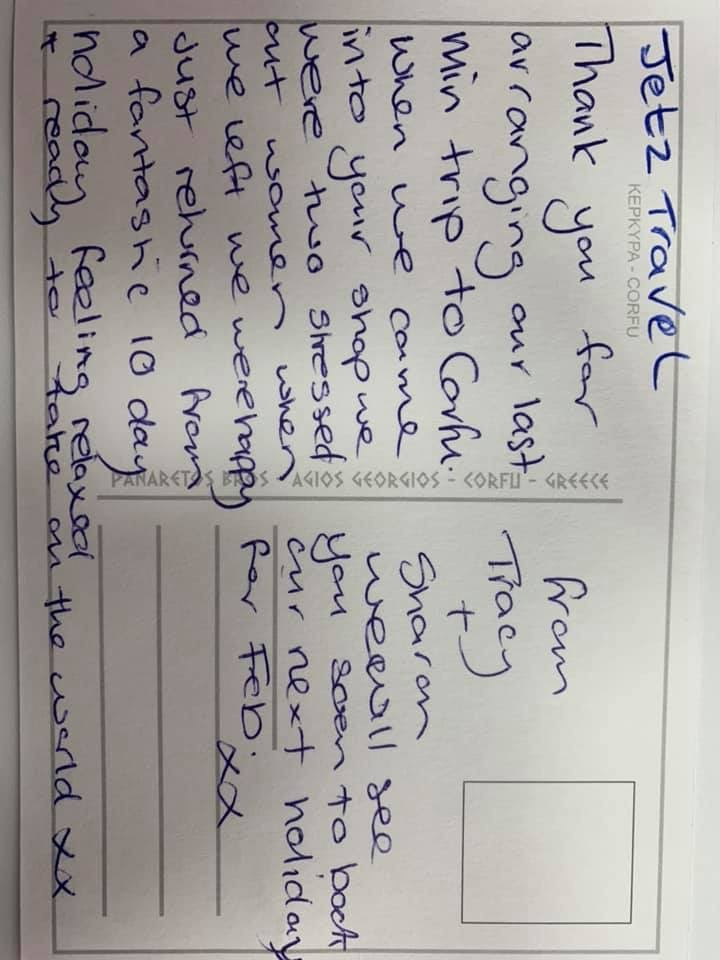 Jetz Travel
ΚΕΡΚΥΡΑ - CORFU
Thank you for
arranging our last
min trip to Corfu.
When we came
into your shop we
were two stressed
out women when
we left we were happy
Just returned from
a fantastic 10 day
holiday feeling relaxed
+ ready to take on the world xx
PANARETOS BROS - AGIOS GEORGIOS - CORFU - GREECE
from
Tracy
+
Sharon
we will see
you soon to book
our next holiday
for Feb.
xx